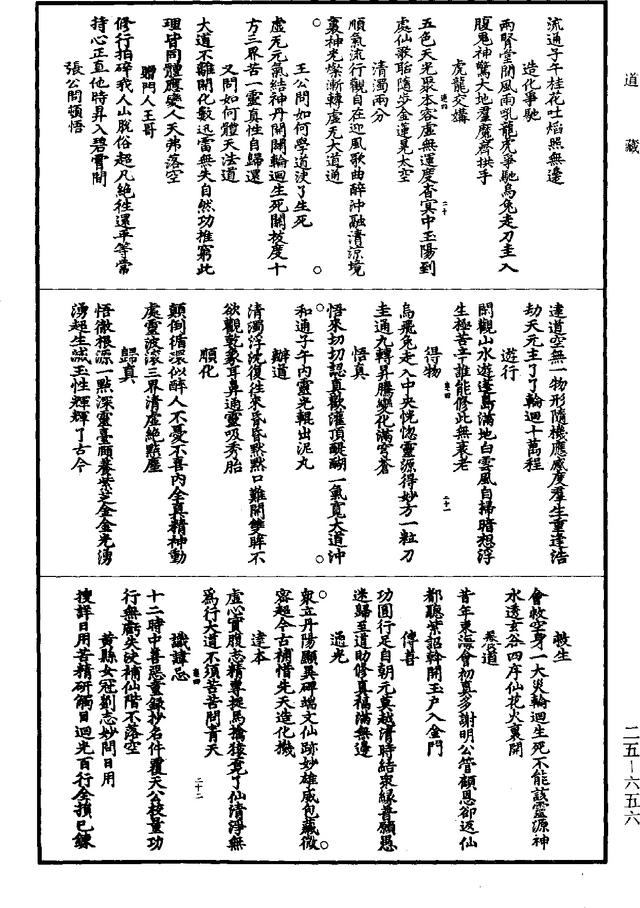 道藏
流通子午桂花吐焰照無邊
造化爭馳
兩腎堂閒風雨吼龍虎爭馳烏兔走刀圭入
腹鬼神驚大地羣魔齊拱手
虎龍交媾
五色天光聚本容虛無運度杳冥中玉陽到
處仙歌聒隨步金蓮晃太空
清濁兩分
順氣流行觀自在迎風歌曲醉沖融清涼境
裏神光燦漸轉虛无大道通
王公問如何學道決了生死
虛无元氣結神丹開闢輪迴生死關拔度十
方三界苦一靈真性自歸還
又問如何體天法道
大道不離開化數迅雷無失自然功推窮此
理皆同體應變人天弗落空
贈門人王哥
修行拍碎我人山脫俗超凡絶往還平等常
持心正直他時昇入碧霄間
張公問頓悟
達道空無一物形隨機應感度羣生重逢浩
劫天元主了了輪迴十萬程
遊行
閒觀山水遊蓬島滿地白雲風自掃暗想浮
生極苦辛誰能修此無衰老
得物
烏飛兔走入中央恍惚靈源得妙方一粒刀
圭通九轉昇騰變化滿穹蒼
悟真
悟來切切認真歡灌頂醍醐一氣寬大道沖
和通子午內靈光輥出泥丸
辦道
清濁浮沈復往來昏昏默默口難開雙眸不
欲觀乾象耳鼻通靈吸秀胎
順化
顛倒循環似醉人不憂不喜內全真精神動
處靈波滾三界清虛絶點塵
歸真
悟徹根源一點深靈臺頤養紫芝金金光湧
湧超生滅玉性輝輝了古今
救生
會救空身一大災輪迴生死不能該靈源神
水透玄谷四序仙花火裏開
悉道
昔年東海會初真多謝明公管顧恩卻返仙
都聽紫詔幹開玉户入金門
傳善
功圓行足自朝元莫越清時結衆緣普願愚
迷歸至道助修真福滿無邊
通光
衆立丹陽顯異碑端文仙跡妙雄威包藏微
容超今古補惜先天造化機
達本
虛心實腹志精專捉馬擒猿覓了仙清淨無
爲行大道不須苦苦問青天
識諱忌
十二時中善惡靈録抄名件覆天公校量功
行無虧失決補仙階不落空
黄縣女冠劉志妙問日用
搜詳日用苦精研觸目迴光百行全損已鍊
二五—六五六